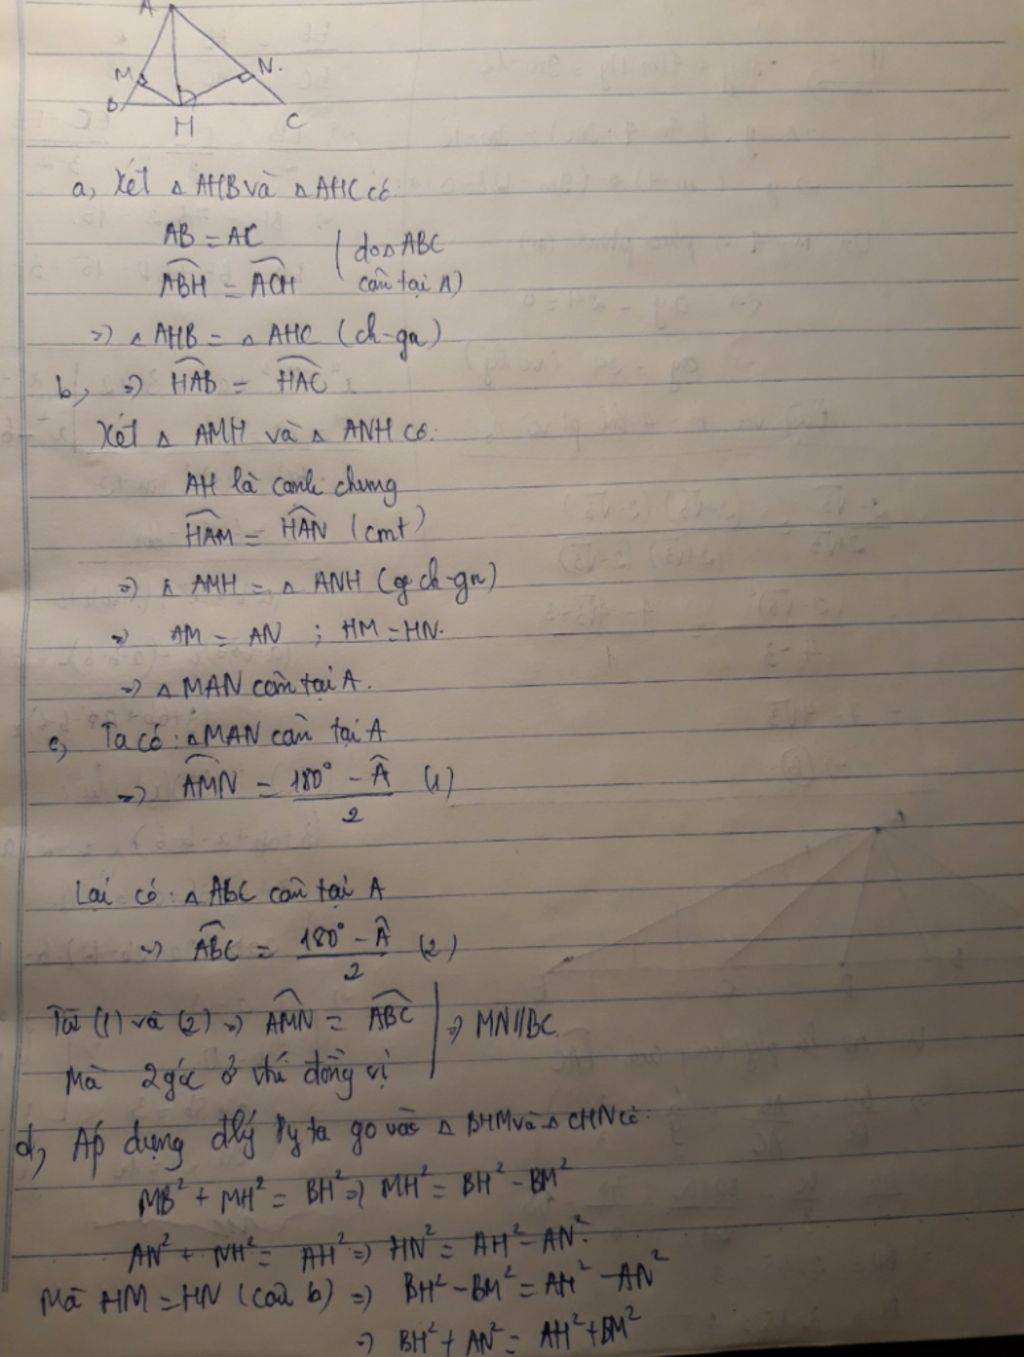 A
M
N.
B
H
C
a, Xét △ AHB và △ AHC có
AB = AC (do △ ABC
ABH = ACH cân tại A)
=> △ AHB = △ AHC (ch-gn)
b, => HAB = HAC
Xét △ AMH và △ ANH có:
AH là cạnh chung
HAM = HAN (cmt)
=> △ AMH = △ ANH (ch-gn)
=> AM = AN ; HM = HN.
=> △ MAN cân tại A.
c, Ta có: △ MAN cân tại A
=> AMN = (180° - Â)/2 (1)
Lại có: △ ABC cân tại A
=> ABC = (180° - Â)/2 (2)
Từ (1) và (2) => AMN = ABC | => MN//BC.
Mà 2 góc ở vhí đồng vị
d, Áp dụng đlý Py ta go vào △ BHM và △ CHN có:
MB² + MH² = BH² => MH² = BH² - BM²
AN² + NH² = AH² => HN² = AH² - AN².
Mà HM = HN (câu b) => BH² - BM² = AH² - AN²
=> BH² + AN² = AH² + BM²